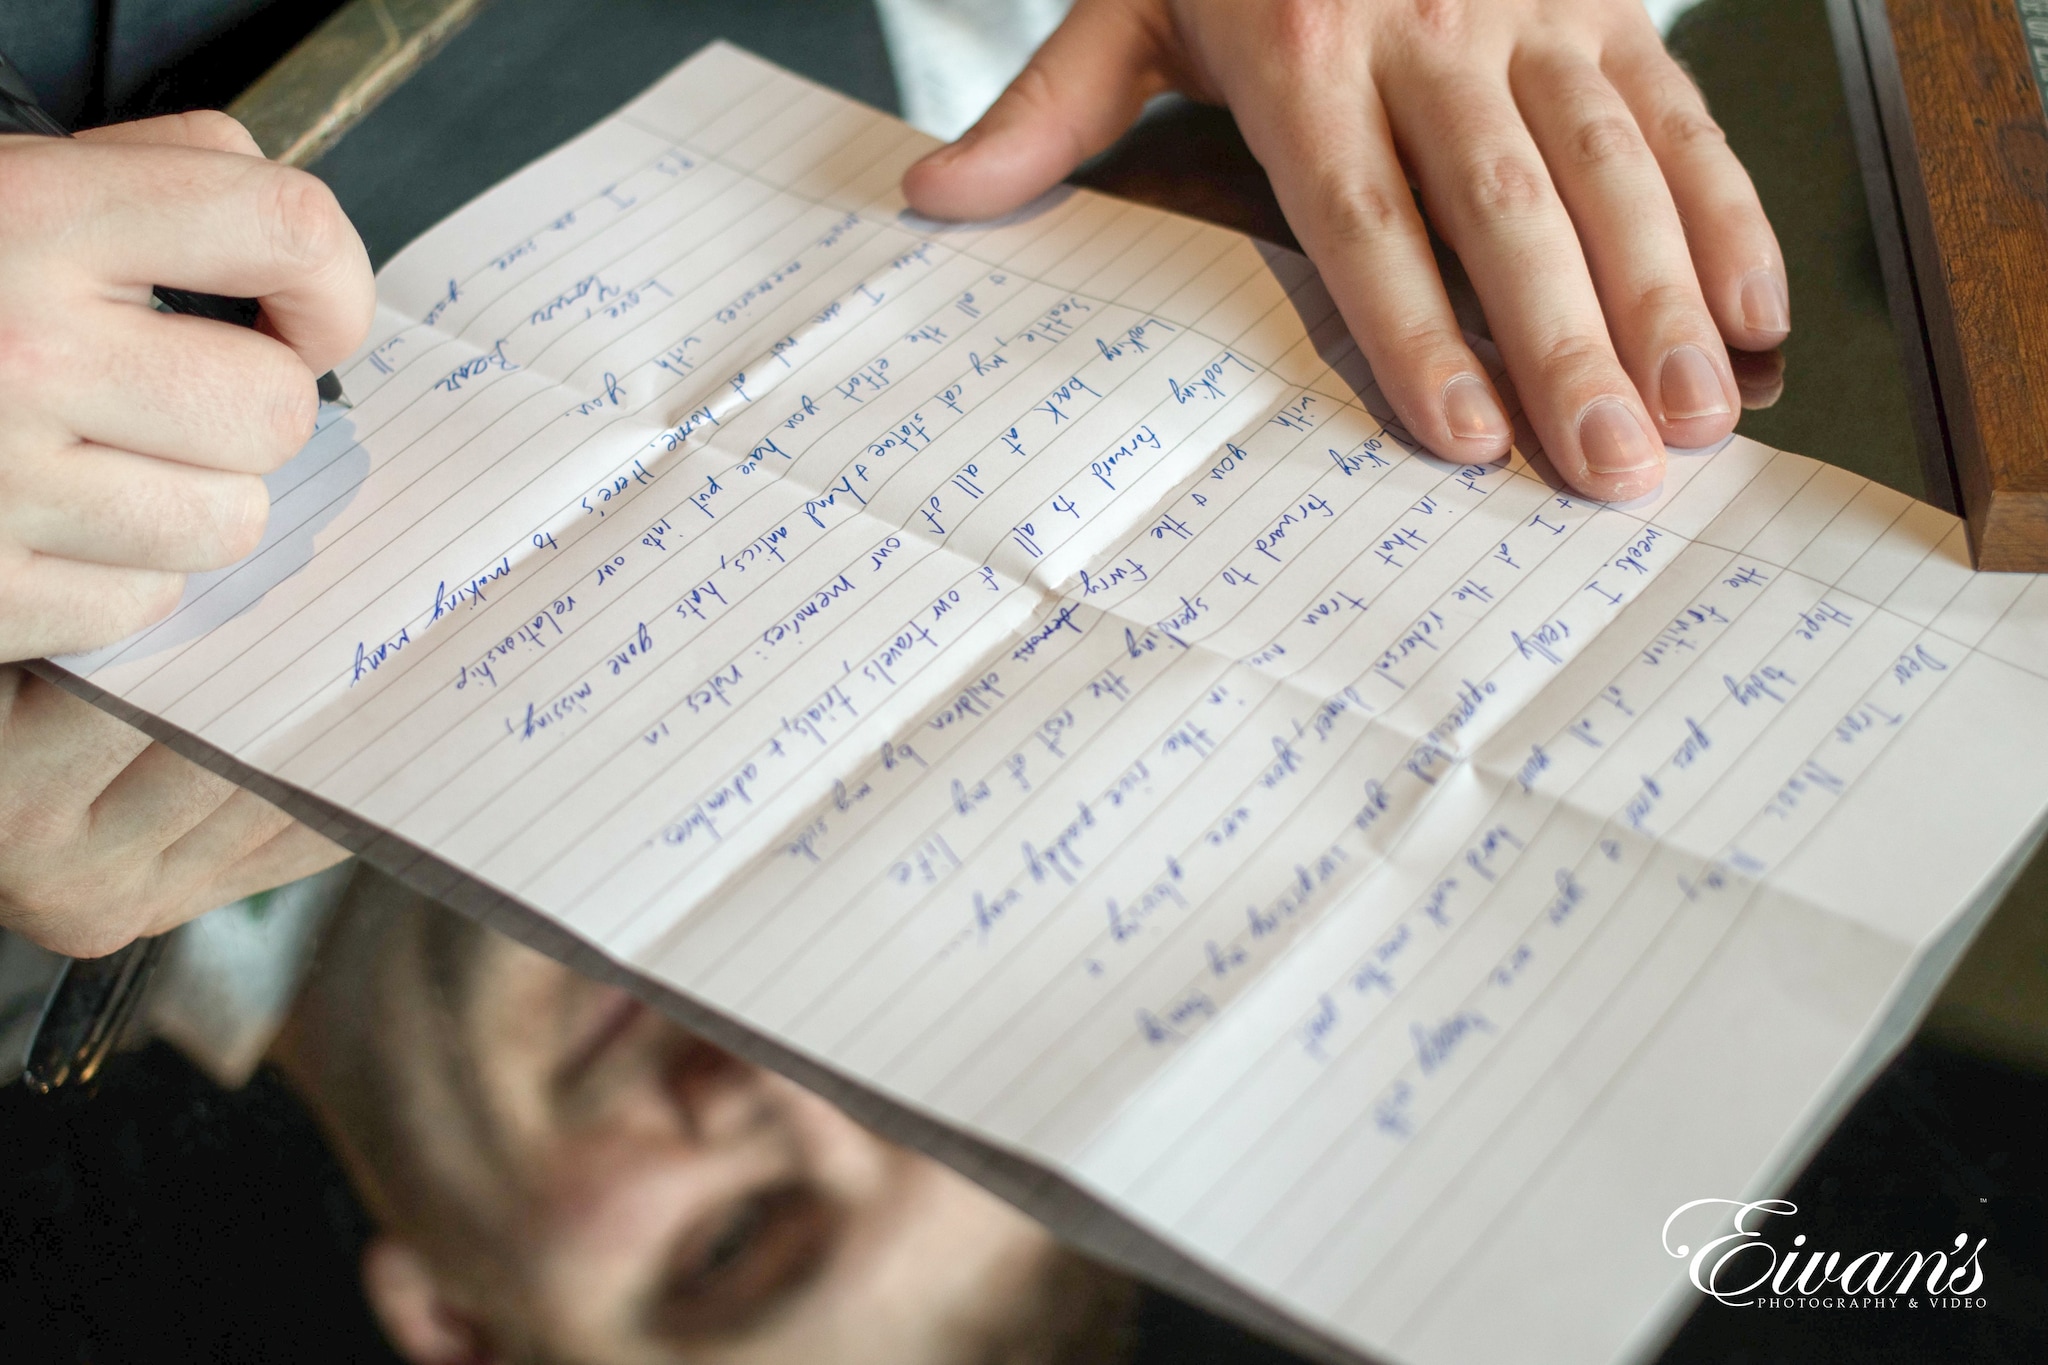 Dear Tran
Hope today goes great & you are happy with
the fruition of all your hard work over the past
weeks. I really appreciated you surprising my family
+ I at the rehersal dinner, you were glowing &
not in that Tran way in the rice paddy way...
Looking forward to spending the rest of my life
with you & the furry demons children by my side
Looking forward to all of our travels, trials, + adventures.
Looking back at all of our memories: notes in
Seattle, my cat statue & hand antics, hats gone missing,
& all the effort you have put into our relationship
when I am not at home. Here's to making many
more memories with you.
Love,
Bear
P.S I am sure you will
Eivan's
PHOTOGRAPHY & VIDEO